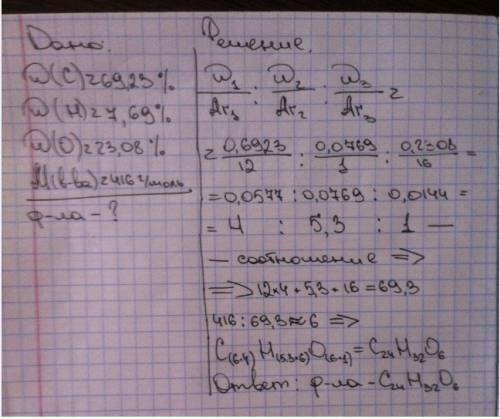 Дано:
W(C)=69,23%
W(H)=7,69%
W(O)=23,08%
M(в-ва)=416 г/моль
ф-ла - ?
Решение.
W₁/Ar₁ : W₂/Ar₂ : W₃/Ar₃ =
= 0,6923/12 : 0,0769/1 : 0,2308/16 =
= 0,0577 : 0,0769 : 0,0144 =
= 4 : 5,3 : 1 —
— соотношение =>
=> 12*4+5,3+16=69,3
416:69,3≈6 =>
C(6·4)H(5.3·6)O(6·1)=C₂₄H₃₂O₆
Ответ: ф-ла - C₂₄H₃₂O₆